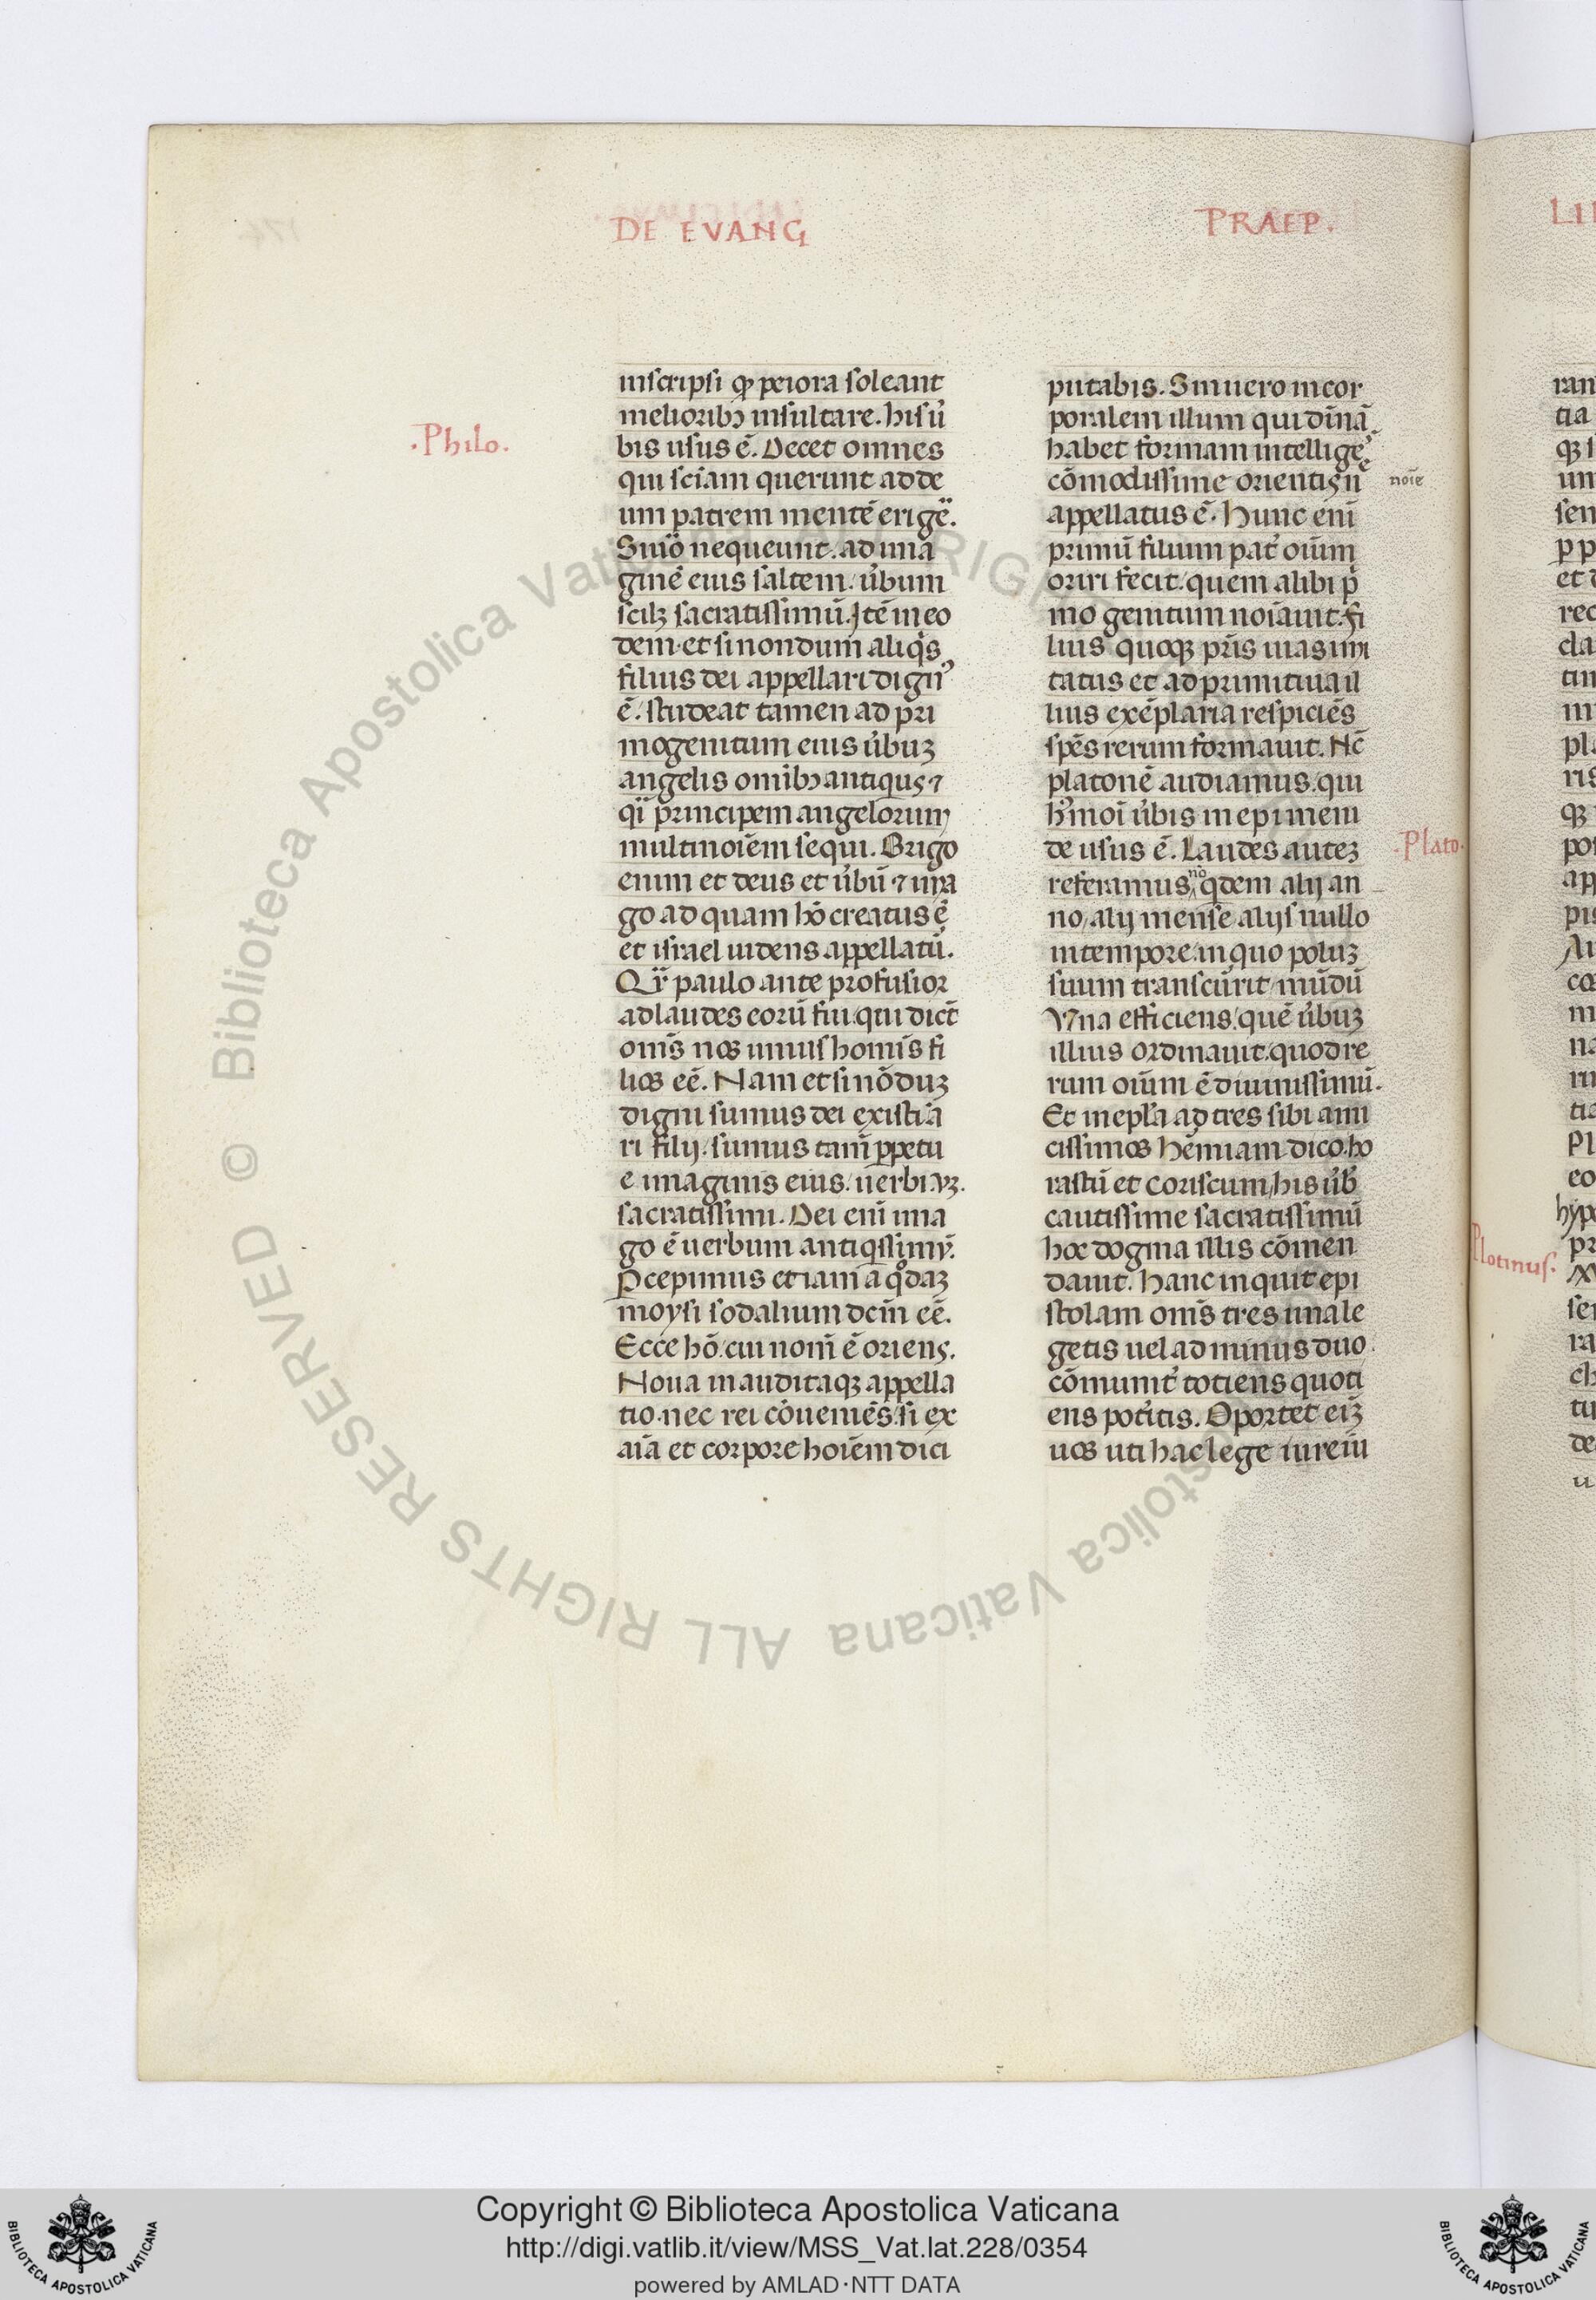 DE EVANG
PRAEP.
.Philo.
inscripsi qp peiora soleant
melioribꝫ insultare. his ū
bis usus ē. Decet omnes
qui sciam querunt ad de
um patrem mentē erigē.
Sin uo nequeunt. ad ima
ginē eius saltem. ūbum
scilꝫ sacratissimū. Itē in eo
dem. et si nondum aliqs
filius dei appellari dignꝰ
ē. studeat tamen ad pri
mogenitum eius ūbuꝫ
angelis omībꝫ antiqus ⁊
qi principem angelorum
multinoiēm sequi. Origo
enim et deus et ūbū ⁊ ima
go ad quam hō creatus ē
et israel uidens appellatū.
Qr paulo ante profusior
ad laudes eorū fui. qui dicūt
om̄s nos unius homīs fi
lios eē. Nam et si nōduꝫ
digni sumus dei existia
ri filij. sumus tam̄ ꝑpetu
e imaginis eius. uerbi.uꝫ.
sacratissimi. Dei enī ima
go ē uerbum antiqssimū.
Pcepimus etiam a qdaꝫ
moysi sodalium dcm̄ eē.
Ecce hō. cui nom̄ ē oriens.
Noua inauditaqꝫ appella
tio. nec rei cōueniēs. si ex
aīa et corpore hoiēm dici
putabis. Sin uero incor
poralem illum qui diuinā
habet formam intelligē
cōmodissime orientis n̄e
noīe
appellatus ē. Hunc enī
primū filium pat oīum
oriri fecit. quem alibi p
mo genitum noiāuit. fi
lius quoqꝫ pr̄is uias imi
tatus et ad primitiua il
lius exēplaria respiciēs
spēs rerum formauit. Nc̄
platonē audiamus. qui
hmōi ūbis in epimeni
.Plato.
de usus ē. Laudes auteꝫ
referamus nō qdem alij an
no, alij mense alijs nullo
in tempore. in quo poluꝫ
suum transcūrit mūdū
Vna efficiens. quē ūbuꝫ
illius ordinauit. quod re
rum oīum ē diuinissimū.
Et in epl̄a ad tres sibi ami
cissimos hēmiam dico. ho
rastū et coriscum, his ūb
cautissime sacratissimū
hoc dogma illis cōmen
dauit. Hanc inquit epi
stolam om̄s tres una le
getis uel ad minus duo
cōmunit totiens quoti
ens potītis. Oportet eiꝫ
uos uti hac lege iureiū
Plotinus.
Copyright © Biblioteca Apostolica Vaticana
http://digi.vatlib.it/view/MSS_Vat.lat.228/0354
powered by AMLAD·NTT DATA
BIBLIOTECA APOSTOLICA VATICANA
BIBLIOTECA APOSTOLICA VATICANA
© Biblioteca Apostolica Vaticana ALL RIGHTS RESERVED